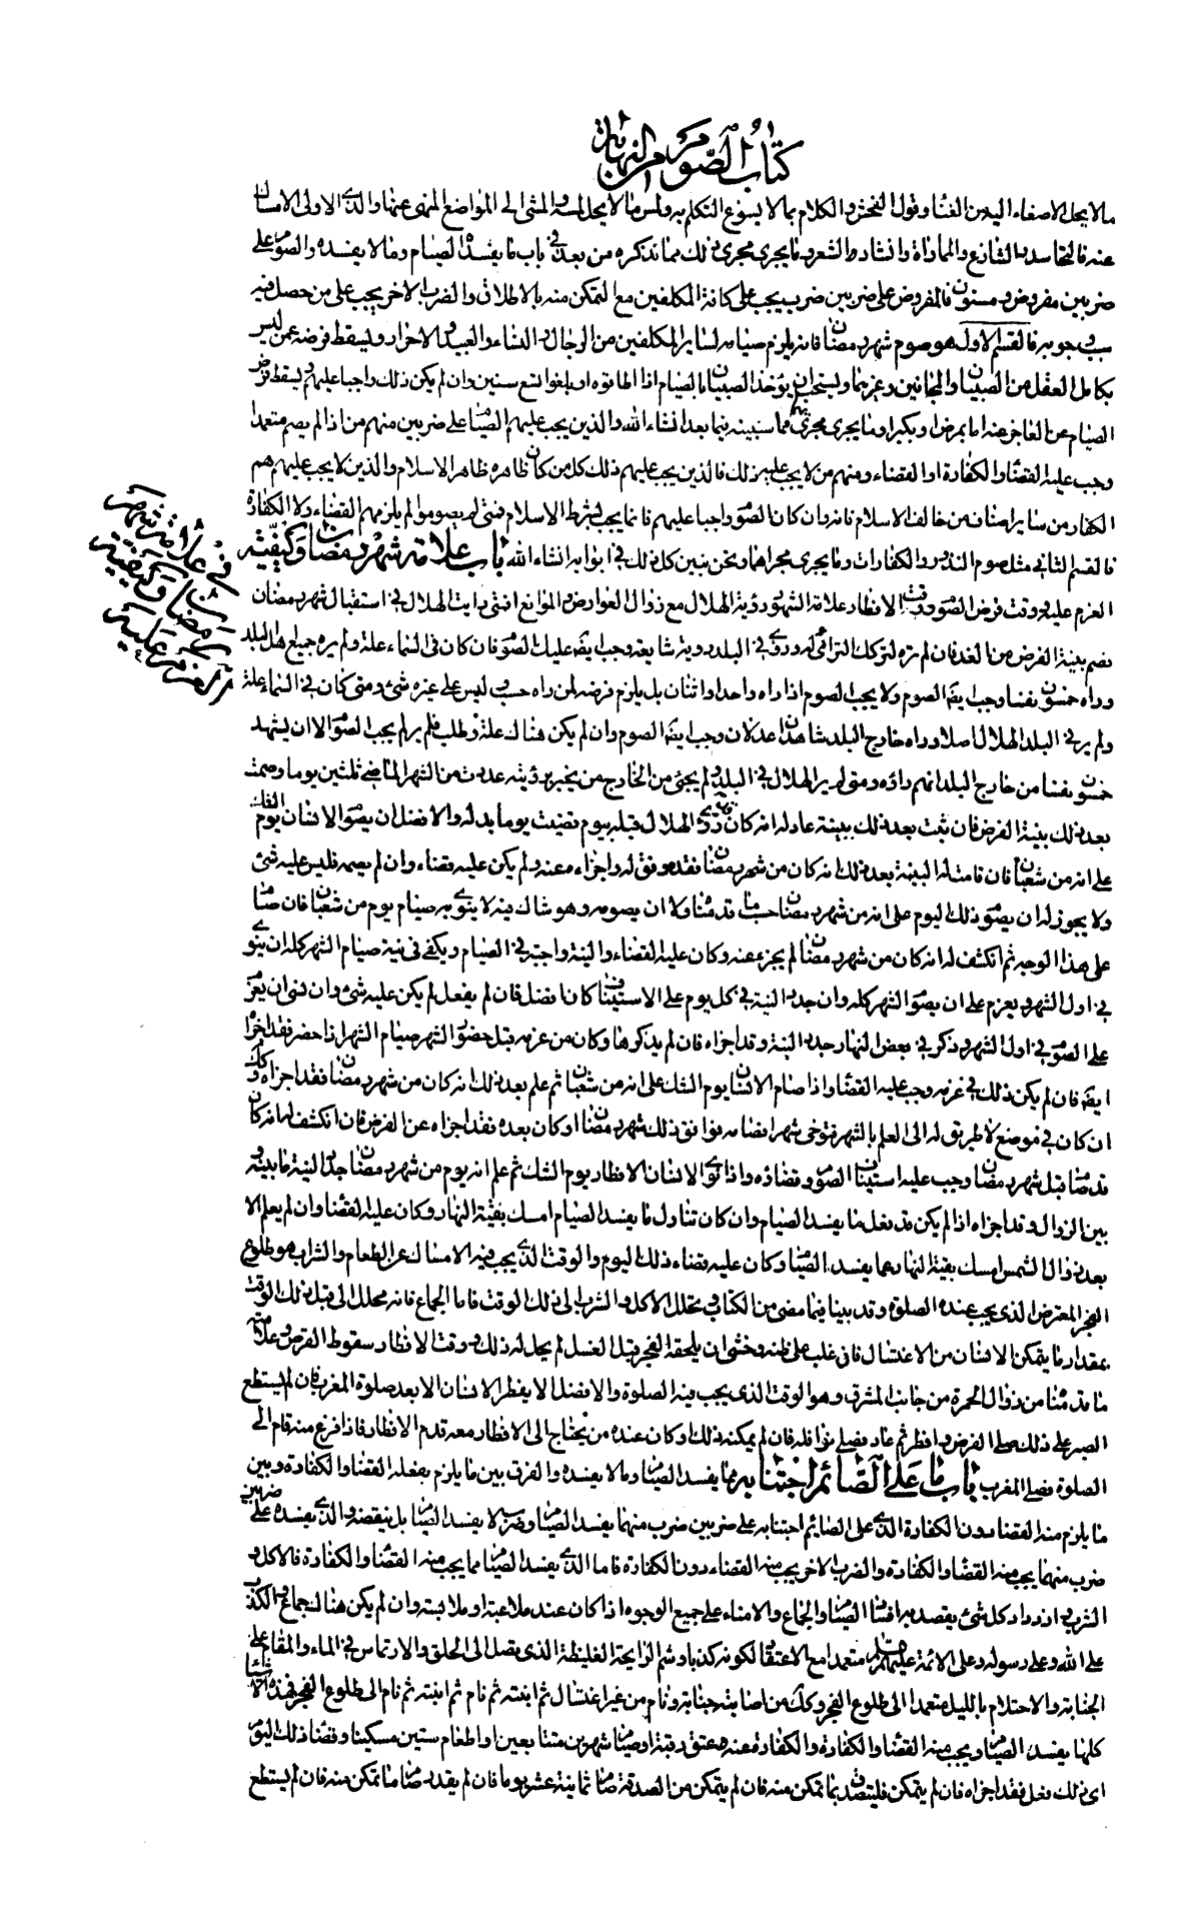 كتاب الصوم من النهاية
ما لا يحل الاصغاء اليه من الغناء وقول الفحش والكلام بما لا يسوغ التكلم به ولمس ما لا يحل لمسه والمشى الى المواضع المنهى عنها والذى الاولى الامساك
عنه فالتحاسد والتنازع والمماراة وانشاد الشعر وما يجرى مجرى ذلك مما نذكره من بعد فى باب ما يفسد الصيام وما لا يفسده والصوم على
ضربين مفروض ومسنون فالمفروض على ضربين ضرب يجب على كافة المكلفين مع التمكن منه بالاطلاق والضرب الاخر يجب على من حصل فيه
سبب وجوبه فالقسم الاول هو صوم شهر رمضان فانه يلزم صيامه لسائر المكلفين من الرجال والنساء والعبيد والاحرار ويسقط فرضه عمن ليس
بكامل العقل من الصبيان والمجانين وغيرهما ويستحب ان يؤخذ الصبيان بالصيام اذا اطاقوه او بلغوا تسع سنين وان لم يكن ذلك واجبا عليهم ويسقط فرض
الصيام عن العاجز عنه اما بمرض او بكبر او ما يجرى مجريهما مما سنبينه فيما بعد انشاء الله والذين يجب عليهم الصيام على ضربين منهم من اذا لم يصم متعمدا
وجب عليه القضاء والكفارة او القضاء ومنهم من لا يجب عليه ذلك فالذين يجب عليهم ذلك كل من كان ظاهره ظاهر الاسلام والذين لا يجب عليهم هم
الكفار من سائر اصناف من خالف الاسلام فانه وان كان الصوم واجبا عليهم فانما يجب بشرط الاسلام فمتى لم يصوموا لم يلزمهم القضاء ولا الكفارة
فالقسم الثانى مثل صوم النذور والكفارات وما يجرى مجراهما ونحن نبين كل ذلك فى ابوابه انشاء الله باب علامة شهر رمضان وكيفية
العزم عليه ووقت فرض الصوم ووقت الافطار علامة الشهور رؤية الهلال مع زوال العوارض والموانع فمتى رايت الهلال فى استقبال شهر رمضان
فصم بنية الفرض من الغد فان لم تره لتركك الترائى له ورؤى فى البلد رؤية شايعة وجب ايضا عليك الصوم فان كان فى السماء علة ولم يره جميع اهل البلد
وراه خمسون نفسا وجب ايضا الصوم ولا يجب الصوم اذا راه واحد او اثنان بل يلزم فرضه لمن راه حسب وليس على غيره شئ ومتى كان فى السماء علة
ولم ير فى البلد الهلال اصلا وراه خارج البلد شاهدان عدلان وجب ايضا الصوم وان لم يكن هناك علة وطلب فلم ير لم يجب الصوم الا ان يشهد
خمسون نفسا من خارج البلد انهم راؤه ومتى لم ير الهلال فى البلد ولم يجئ من الخارج من يخبر برؤيته عددت من الشهر الماضى ثلثين يوما وصمت
بعد ذلك بنية الفرض فان ثبت بعد ذلك ببينة عادلة انه كان رؤى الهلال قبله بيوم قضيت يوما بدله والافضل ان يصوم الانسان يوم الشك
على انه من شعبان فان قامت له البينة بعد ذلك انه كان من شهر رمضان فقد وفق له واجزاء عنه ولم يكن عليه قضاء وان لم يصمه فليس عليه شئ
ولا يجوز له ان يصوم ذلك اليوم على انه من شهر رمضان حسب ما قدمناه ولا ان يصومه وهو شاك فيه لا ينوى به صيام يوم من شعبان فان صام
على هذا الوجه ثم انكشف له انه كان من شهر رمضان لم يجز عنه وكان عليه القضاء والنية واجبة فى الصيام ويكفى فى نية صيام الشهر كله ان ينوى
فى اول الشهر ويعزم على ان يصوم الشهر كله وان جدد النية فى كل يوم على الاستيناف كان افضل فان لم يفعل لم يكن عليه شئ وان نسى ان يعزم
على الصوم فى اول الشهر وذكر فى بعض النهار جدد النية وقد اجزاه فان لم يذكرها وكان من عزمه قبل حضور الشهر صيام الشهر اذا حضر فقد اجزا
ايضا فان لم يكن ذلك فى عزمه وجب عليه القضاء واذا صام الانسان يوم الشك على انه من شعبان ثم علم بعد ذلك انه كان من شهر رمضان فقد اجزاه وكك
ان كان فى موضع لا طريق له الى العلم بالشهر فتوخى شهرا فصامه فوافق ذلك شهر رمضان او كان بعده فقد اجزاه عن الفرض فان انكشف له انه كان
قد صام قبل شهر رمضان وجب عليه استيناف الصوم وقضاؤه واذا نوى الانسان الافطار يوم الشك ثم علم انه يوم من شهر رمضان جدد النية ما بينه و
بين الزوال وقد اجزاه اذا لم يكن قد فعل ما يفسد الصيام وان كان تناول ما يفسد الصيام امسك بقية النهار وكان عليه القضاء وان لم يعلم الا
بعد زوال الشمس امسك بقية النهار عما يفسد الصيام وكان عليه قضاء ذلك اليوم والوقت الذى يجب فيه الامساك عن الطعام والشراب هو طلوع
الفجر المعترض الذى يجب عنده الصلوة وقد بينا فيما مضى من الكتاب ومحلل الاكل والشرب الى ذلك الوقت فاما الجماع فانه محلل الى قبل ذلك الوقت
بمقدار ما يتمكن الانسان من الاغتسال فان غلب على ظنه وخشى ان يلحقه الفجر قبل الغسل لم يحل له ذلك ووقت الافطار سقوط القرص وعلامته
ما قدمناه من زوال الحمرة من جانب المشرق وهو الوقت الذى يجب فيه الصلوة والافضل الا يفطر الانسان الا بعد صلوة المغرب فان لم يستطع
الصبر على ذلك صلى الفرض وافطر ثم عاد فصلى نوافله فان لم يمكنه ذلك او كان عنده من يحتاج الى الافطار معه قدم الافطار فاذا فرغ منه قام الى
الصلوة فصلى المغرب باب ما على الصائم اجتنابه مما يفسد الصيام وما لا يفسده والفرق بين ما يلزم بفعله القضاء والكفارة وبين
ما يلزم منه القضاء دون الكفارة الذى على الصايم اجتنابه على ضربين ضرب منهما يفسد الصيام وضرب لا يفسد الصيام بل ينقضه والذى يفسده على ضربين
ضرب منهما يجب منه القضاء والكفارة والضرب الاخر يجب منه القضاء دون الكفارة فاما الذى يفسد الصيام مما يجب منه القضاء والكفارة فالاكل و
الشرب وازدراد كل شئ يقصد به افساد الصيام والجماع والامناء على جميع الوجوه اذا كان عند ملاعبة او ملامسة وان لم يكن هناك جماع والكذب
على الله وعلى رسوله وعلى الائمة عليهم السلام متعمدا مع الاعتقاد لكونه كذبا وشم الرايحة الغليظة الذى يصل الى الحلق والارتماس فى الماء والمقام على
الجنابة والاحتلام بالليل متعمدا الى طلوع الفجر وكك من اصابته جنابة ونام من غير اغتسال ثم انتبه ثم نام ثم انتبه ثم نام الى طلوع الفجر فهذه الاشياء
كلها يفسد الصيام ويجب منه القضاء والكفارة والكفارة عنه عتق رقبة او صيام شهرين متتابعين او اطعام ستين مسكينا وقضاء ذلك اليوم
اى ذلك فعل فقد اجزاه فان لم يتمكن فليتصدق بما تمكن منه فان لم يتمكن من الصدقة صام ثمانية عشر يوما فان لم يقدر صام ما تمكن منه فان لم يستطع
فى علامة شهر
رمضان وكيفية
العزم عليه